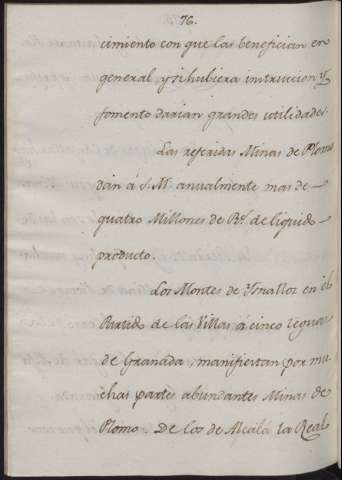 76.
cimiento con que las benefician en
general y si hubiera instruccion y
fomento darian grandes utilidades.
Las referidas Minas de Plomo
dán á S.M. anualmente mas de
quatro Millones de Rs. de liquido
producto.
Los Montes de Ynalloz en el
Partido de las Villas á cinco leguas
de Granada, manifiestan por mu
chas partes abundantes Minas de
Plomo. De los de Alcalá la Real